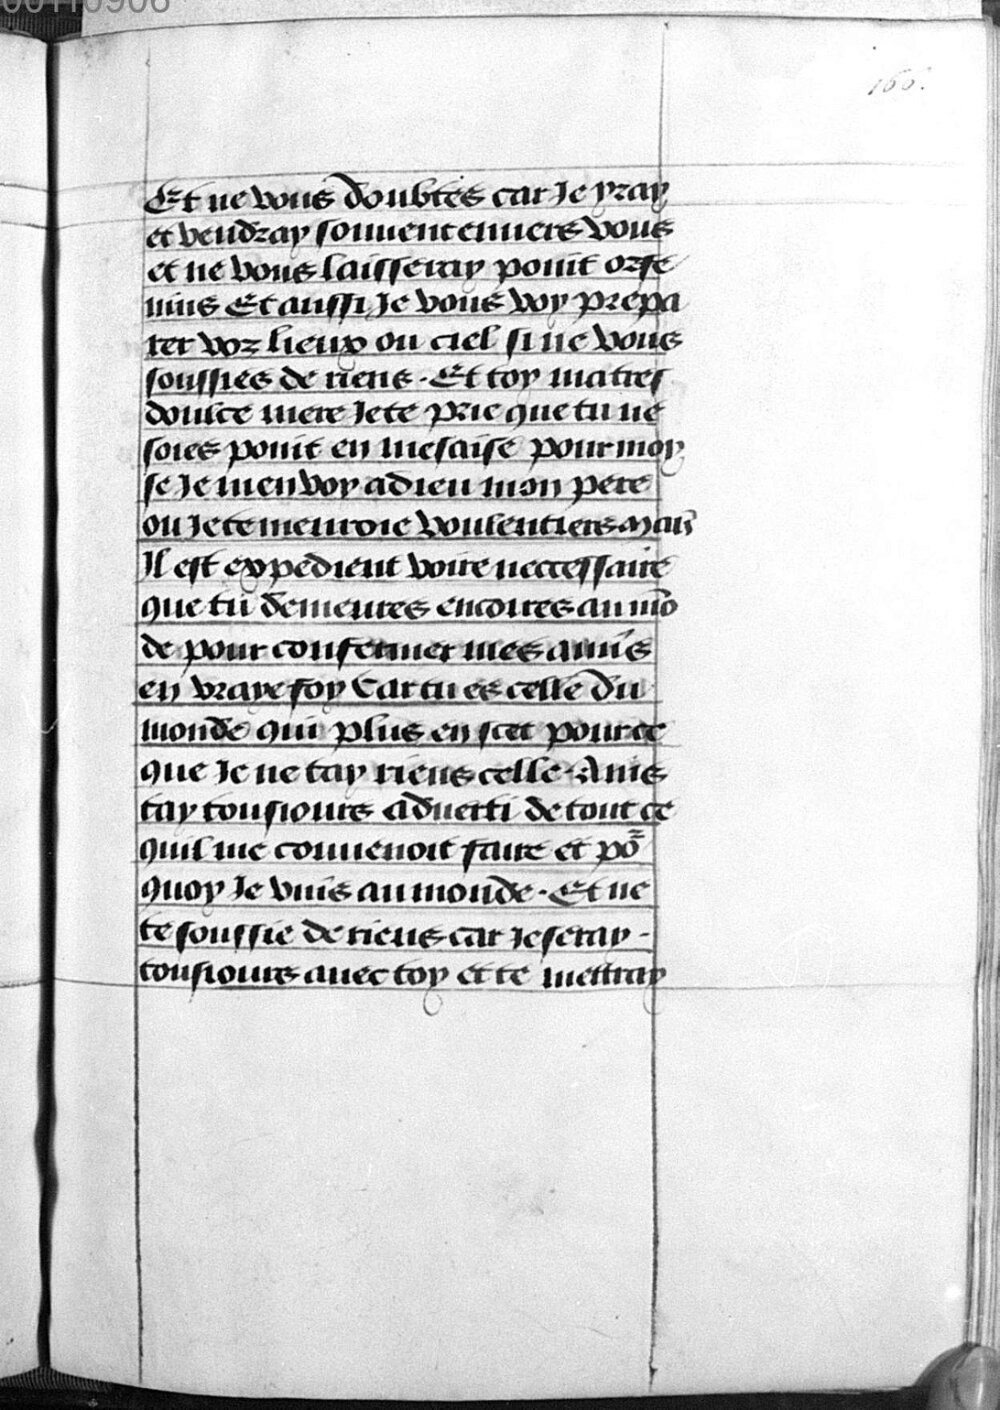 00110906
166.
Et ne vous doubtes car Je yray
et vendray souvent envers vous
et ne vous laisseray point orfe
nins Et aussi Je vous voy prepa
rer voz lieux ou ciel si ne vous
soussies de riens . Et toy ma tres
doulce mere Je te prie que tu ne
soies point en mesaise pour moy
se Je men voy a dieu mon pere
ou Je te menroie voulentiers Mais
Il est expedient voire neccessaire
que tu demeures encoires au mō
de pour confermer mes amis
en vraye foy Car tu es celle du
monde qui plus en scet pource
que Je ne tay riens celle . Ains
tay tousiours adverti de tout ce
quil me convenoit faire et po᷑
quoy Je vins au monde . Et ne
te soussie de riens car Je seray -
tousiours avec toy et te mettray